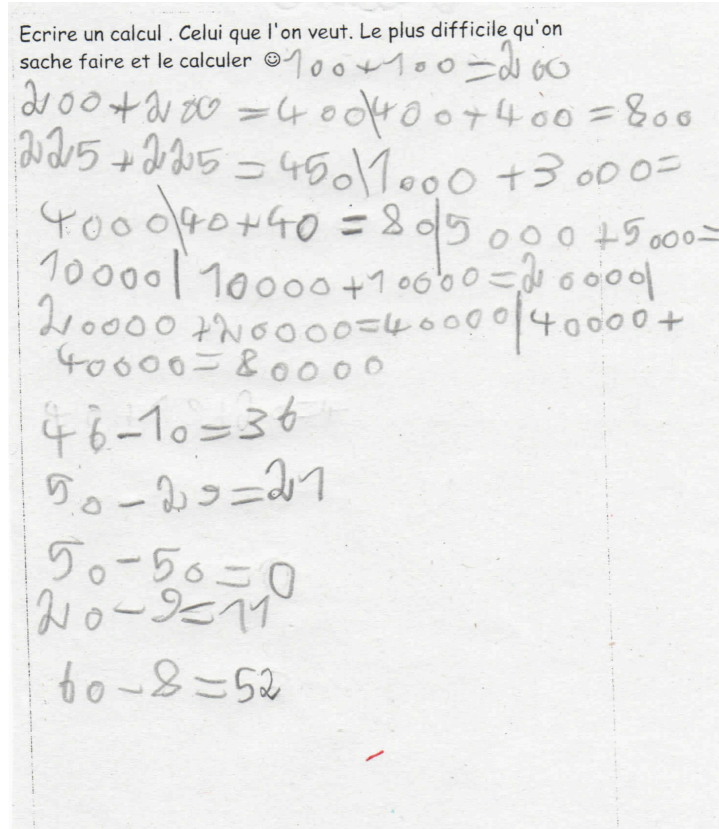 Ecrire un calcul . Celui que l'on veut. Le plus difficile qu'on
sache faire et le calculer ☺ 100+100=200
200+200=400|400+400=800
225+225=450|1000+3000=
4000|40+40=80|5000+5000=
10000|10000+10000=20000|
20000+20000=40000|40000+
40000=80000
46-10=36
50-29=21
50-50=0
20-9=11
60-8=52